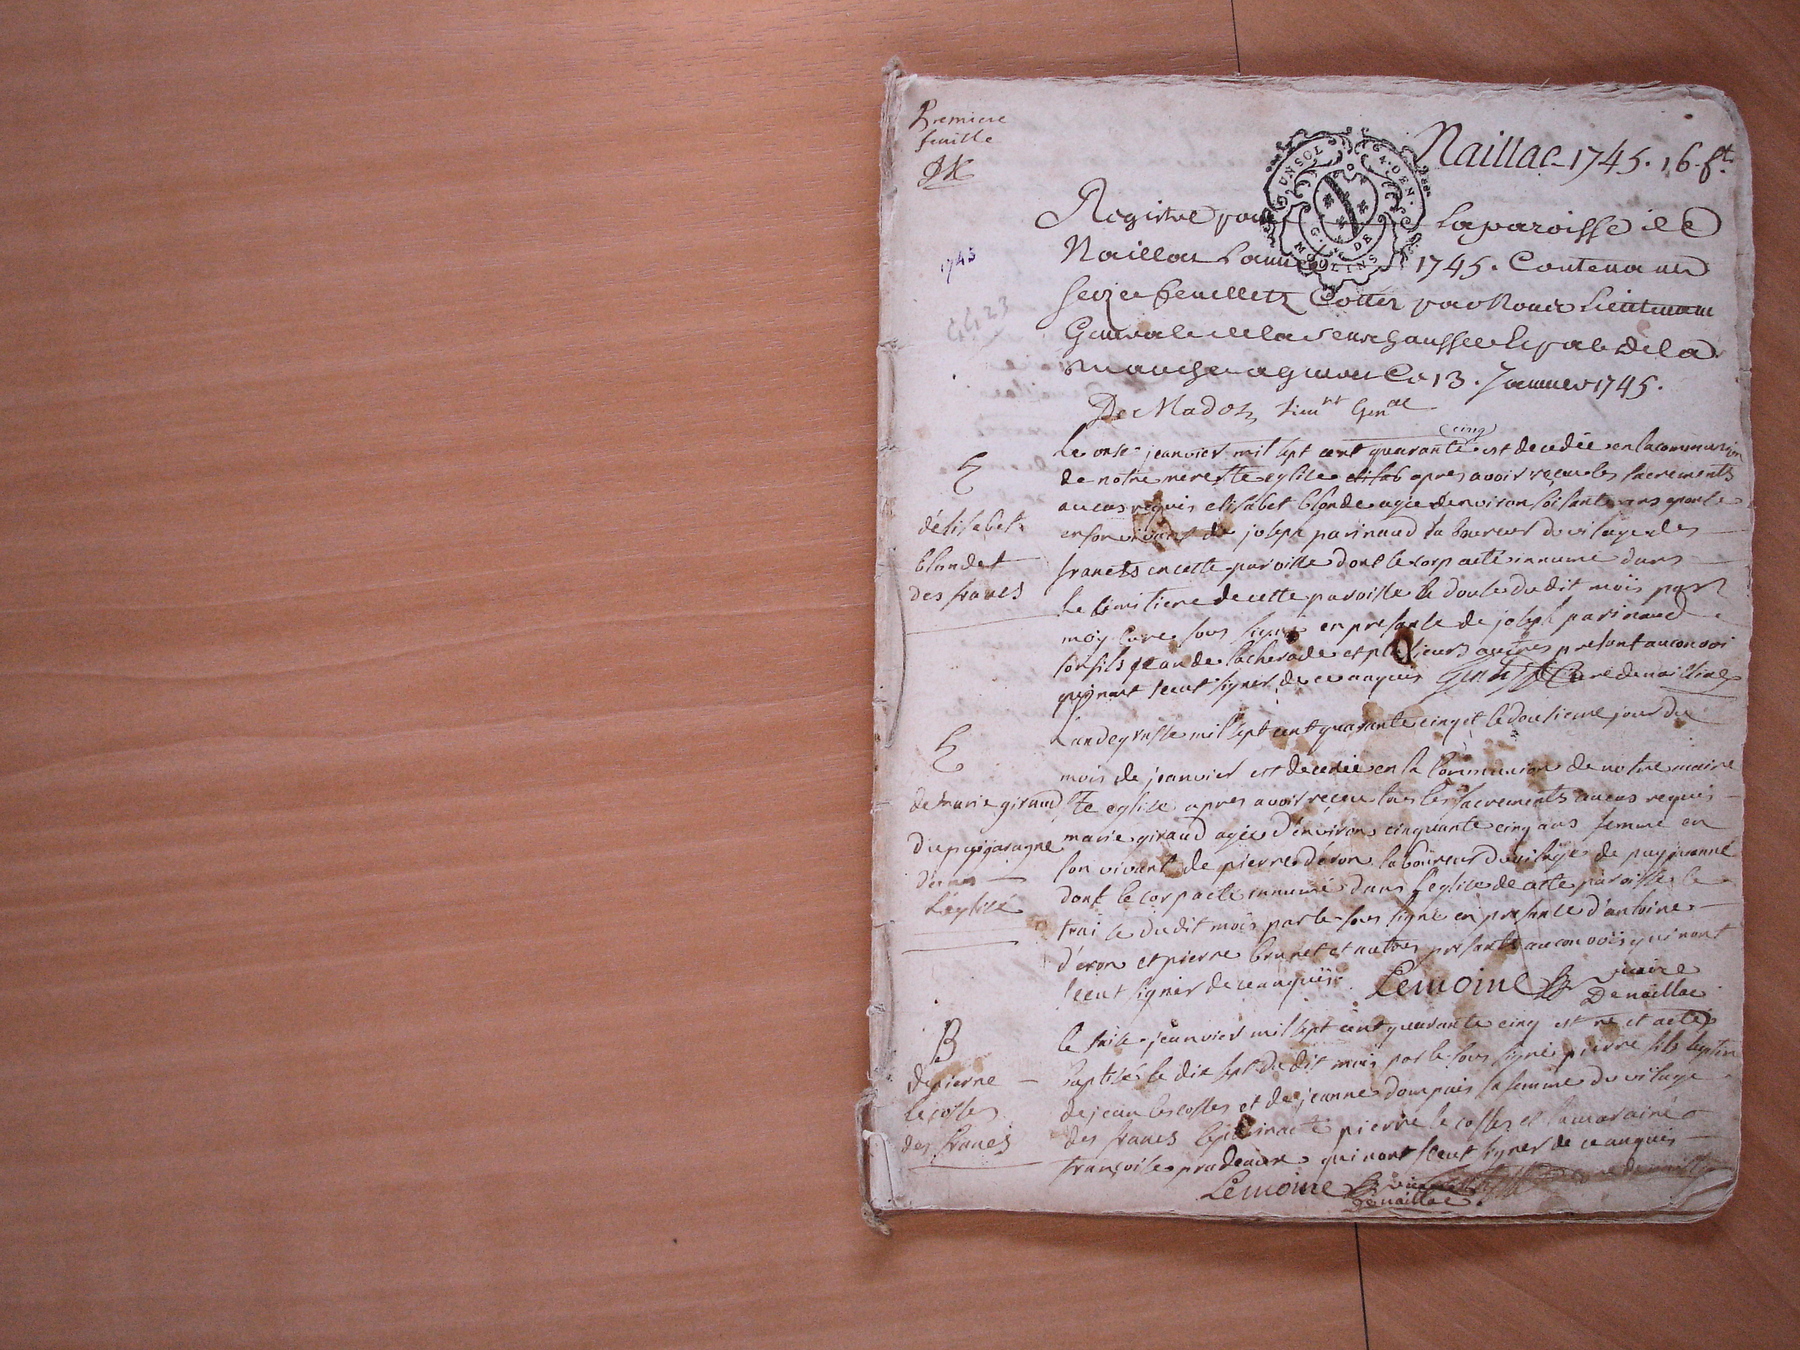 Premiere
feuille
Naillac 1745. 16 ft.
UN SOL 4 DEN.
G. DE MOULINS
1745
Registre pour la paroisse de
Naillat Lannée 1745. Contenant
seize feuillets Cottez par Nous Lieutenant
General de la Senechaussee de la
marche a gueret Ce 13. Janvier 1745.
De Madot Lieunt Genal
cinq
le onse jeanvier mil sept cent quarante est decedée en la communion
de notre mere ste eglise apres avoir reçeu les sacrements
au cas requis elisabet blonde agée denviron soisante ans epouse
en son vivant de joseph parinaud laboureur du vilage des
francts en cette paroisse dont le corp aeté innumé dans
le cemitiere de cette paroisse le douse dudit mois par
moy curé sous signé en presance de joseph parinaud
son fils jean de lacherade et plusieurs autres presant au convoi
qui nont sceut signer de ce anquis curé de naillac
d'élisabet
blondet
des francs
Landegrasse mil sept cent quarante cinq et le dousieme jour du
mois de jeanvier est decedée en la Communion de notre maire
ste eglise apres avoir reçeu tous les sacrements au cas requis
marie giraud agée d'environ cinquante cinq ans femme en
son vivant de pierre déron laboureur du vilage de puyjouanne
dont le corp aeté innumé dans l'eglise de cette paroisse le
traise dudit mois par le sous signé en presance d'antoine
d'éron et pierre brunet et autres presants au convois qui nont
sceut signer de ce anquis. Lemoine vicaire
De naillac
de marie giraud
dans
L'eglise
le saise jeanvier mil sept cent quarante cinq est né et aeté
baptisé le dix sept dudit mois par le sous signé pierre fils legitim
de jean lescosses et de jeanne dompais sa femme du vilage
des francs le pierre le cosses et la maraine
françoise pradeaux qui nont sceut signer de ce anquis
Lemoine vicaire
De naillac.
B
de pierre
le cosses
des francs